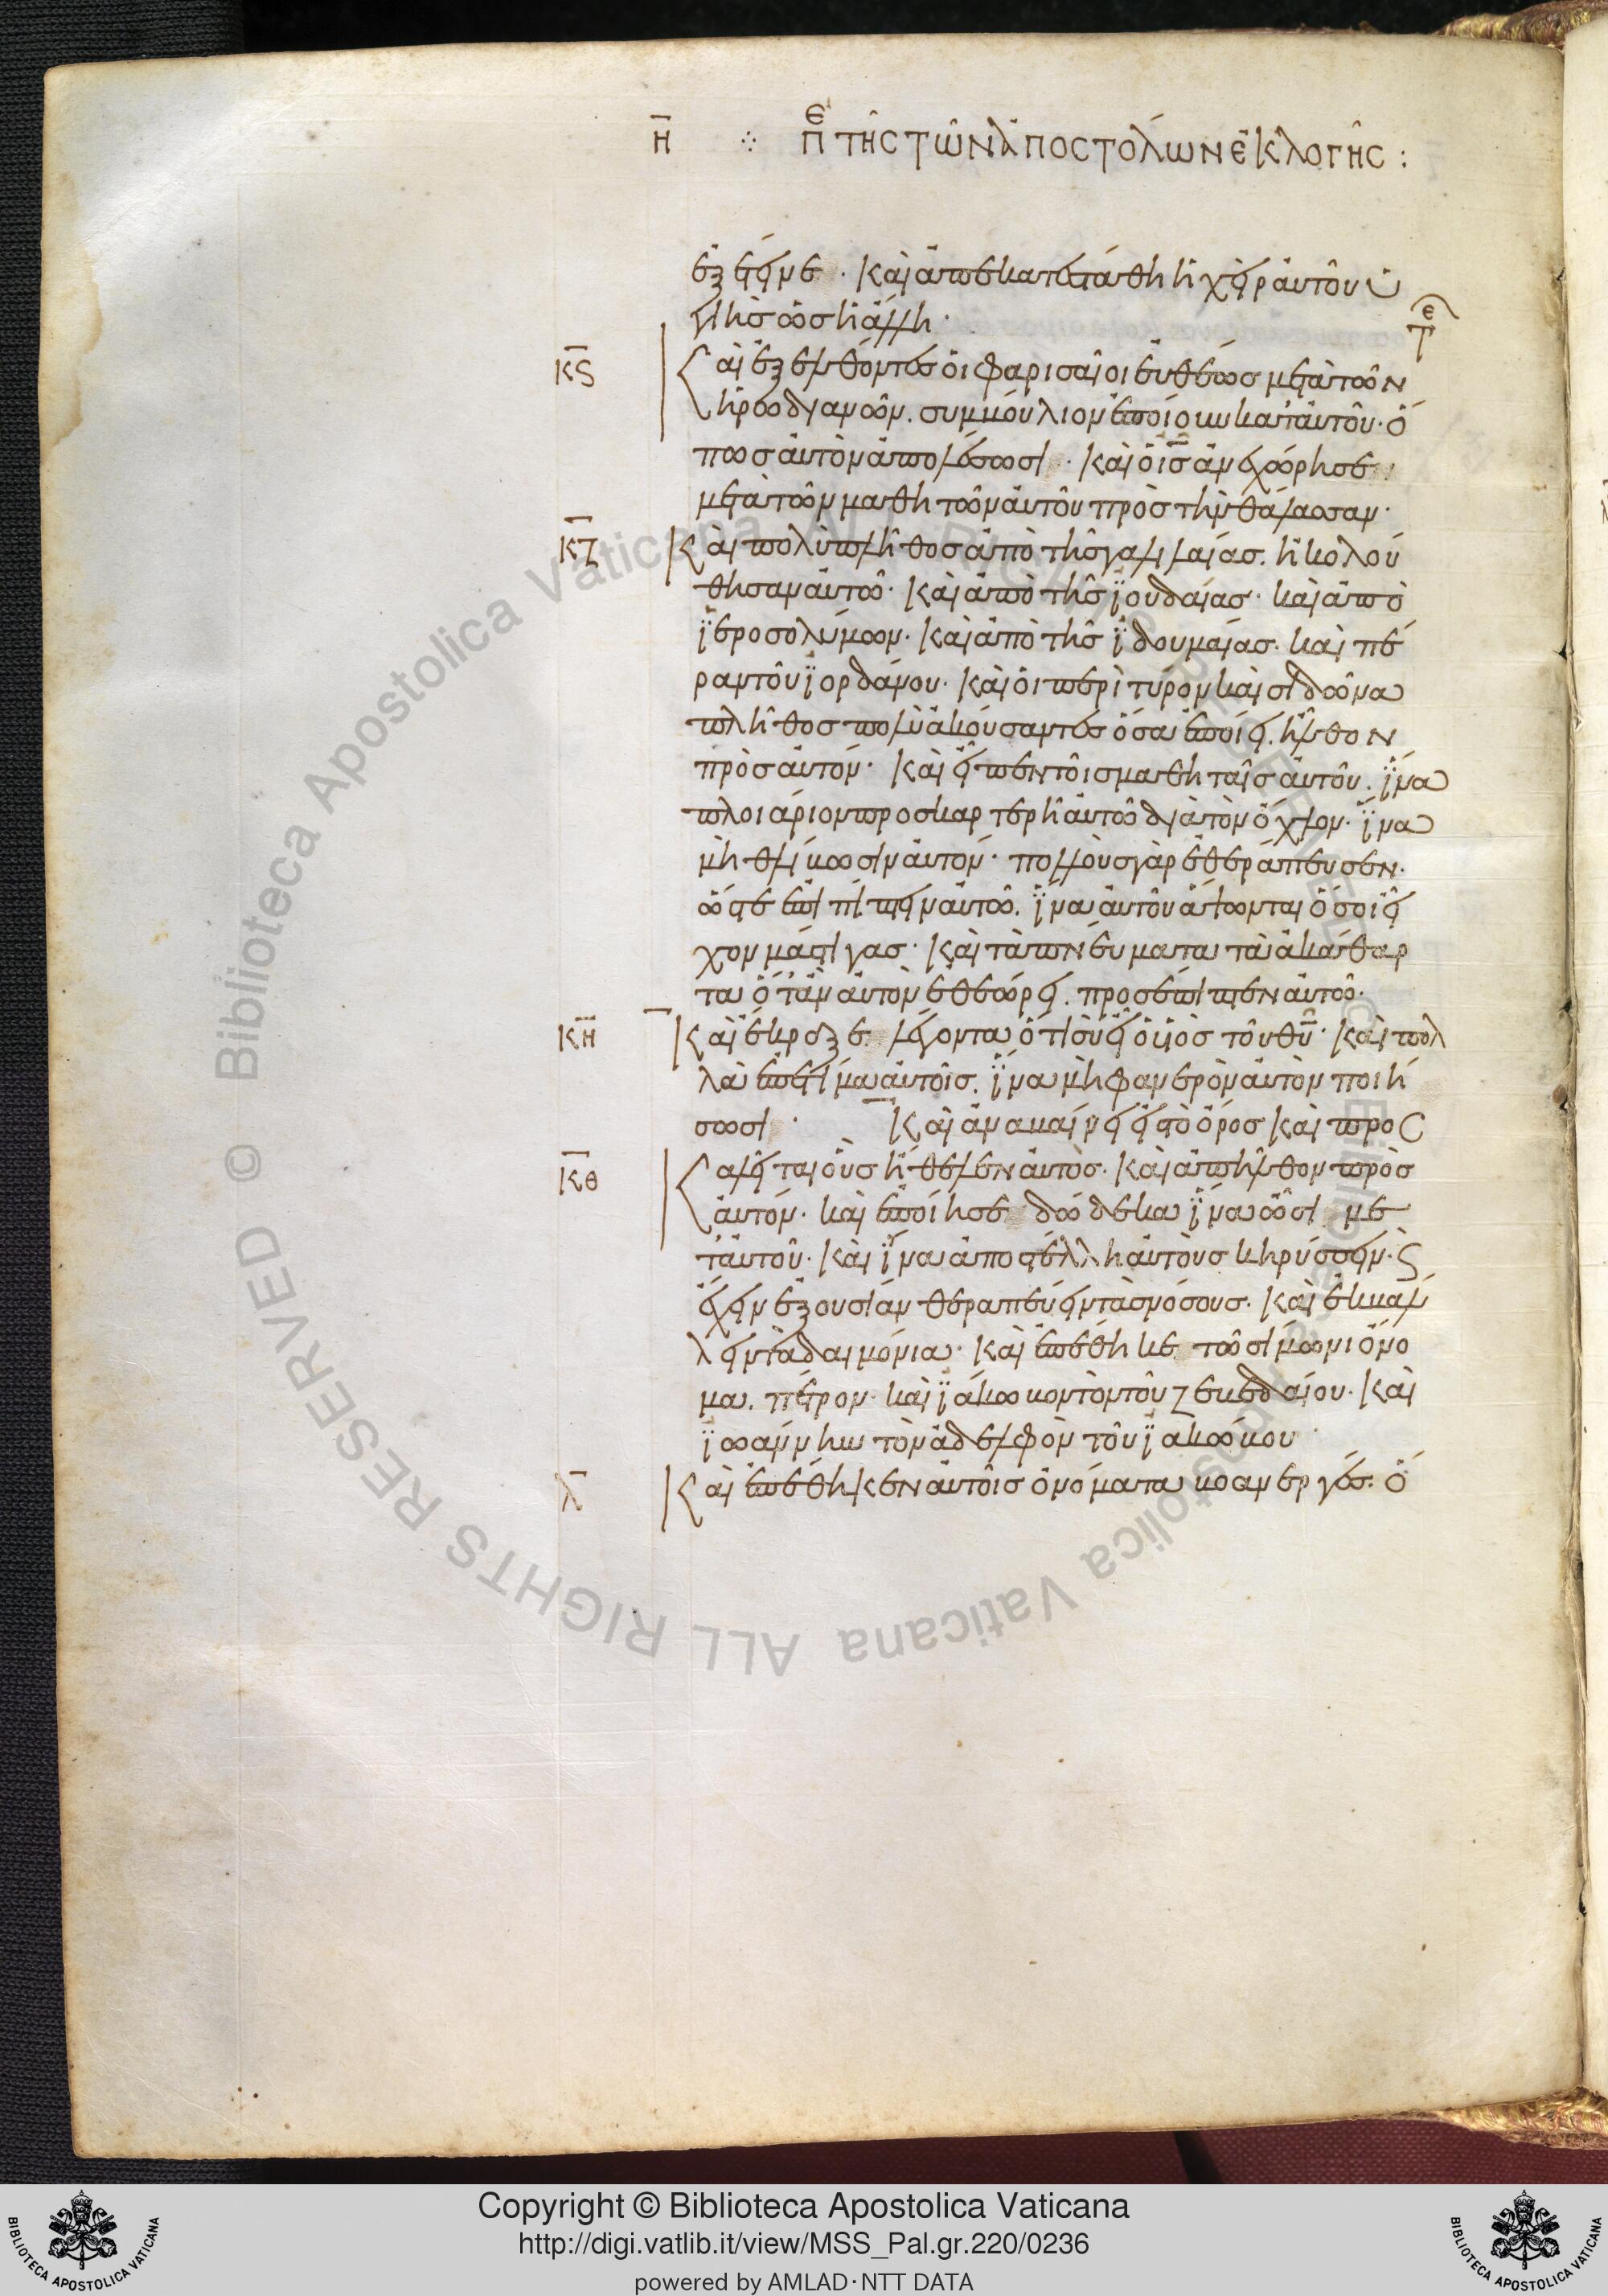 Η ⁘ Πε τῆς τῶν ἀποστόλων ἐκλογῆς :
ἐξέτεινε · καὶ ἀπεκατεστάθη ἡ χεὶρ αὐτοῦ ὑ
γιὴς ὡς ἡ ἄλλη ·
τε
Κϛ Καὶ ἐξελθόντες οἱ φαρισαῖοι εὐθέως μετὰ τῶν
ἡρωδιανῶν. συμβούλιον ἐποίουν κατ' αὐτοῦ · ὅ
πως αὐτὸν ἀπολέσωσι · καὶ ὁ ις ἀνεχώρησε
μετὰ τῶν μαθητῶν αὐτοῦ πρὸς τὴν θάλασσαν ·
ΚΖ Καὶ πολὺ πλῆθος ἀπὸ τῆς γαλιλαίας. ἠκολού
θησαν αὐτῶ · καὶ ἀπὸ τῆς ϊουδαίας · καὶ ἀπὸ
ϊεροσολύμων · καὶ ἀπὸ τῆς ϊδουμαίας · καὶ πέ
ραν τοῦ ϊορδάνου · καὶ οἱ περὶ τύρον καὶ σιδῶνα
πλῆθος πολὺ ἀκούσαντες ὅσα ἐποίει. ἦλθον
πρὸς αὐτόν · καὶ εἶπεν τοῖς μαθηταῖς αὐτοῦ. ϊνα
πλοιάριον προσκαρτερῆ αὐτῶ διὰ τὸν ὄχλον · ϊνα
μὴ θλίβωσιν αὐτόν · πολλοὺς γὰρ ἐθεράπευσεν ·
ὥστε ἐπιπίπτειν αὐτῶ. ϊνα αὐτοῦ ἅψωνται ὅσοι εἶ
χον μάστιγας · καὶ τὰ πνεύματα τὰ ἀκάθαρ
τα ὅταν αὐτὸν ἐθεώρει. προσέπιπτεν αὐτῶ ·
ΚΗ Καὶ ἔκραξε λέγοντα ὅτι σὺ εἶ ὁ υἱὸς τοῦ θυ · καὶ πολ
λὰ ἐπετίμα αὐτοῖς. ϊνα μὴ φανερὸν αὐτὸν ποιή
σωσι · Καὶ ἀναβαίνει εἰς τὸ ὄρος καὶ προς
ΚΘ καλεῖται οὓς ἤθελεν αὐτός · καὶ ἀπῆλθον πρὸς
αὐτόν · καὶ ἐποίησε δώδεκα ϊνα ὦσι με
τ' αὐτοῦ · καὶ ϊνα ἀποστέλλη αὐτοὺς κηρύσσειν · ϛ
ἔχειν ἐξουσίαν θεραπεύειν τὰς νόσους · καὶ ἐκβάλ
λειν τὰ δαιμόνια · καὶ ἐπέθηκε τῶ σίμωνι ὄνο
μα. πέτρον · καὶ ϊάκωβον τὸν τοῦ ζεβεδαίου · καὶ
ϊωάννην τὸν ἀδελφὸν τοῦ ϊακώβου ·
Λ Καὶ ἐπέθηκεν αὐτοῖς ὀνόματα βοανεργές · ὅ
Copyright © Biblioteca Apostolica Vaticana
http://digi.vatlib.it/view/MSS_Pal.gr.220/0236
powered by AMLAD·NTT DATA
BIBLIOTECA APOSTOLICA VATICANA
BIBLIOTECA APOSTOLICA VATICANA
© Biblioteca Apostolica Vaticana ALL RIGHTS RESERVED